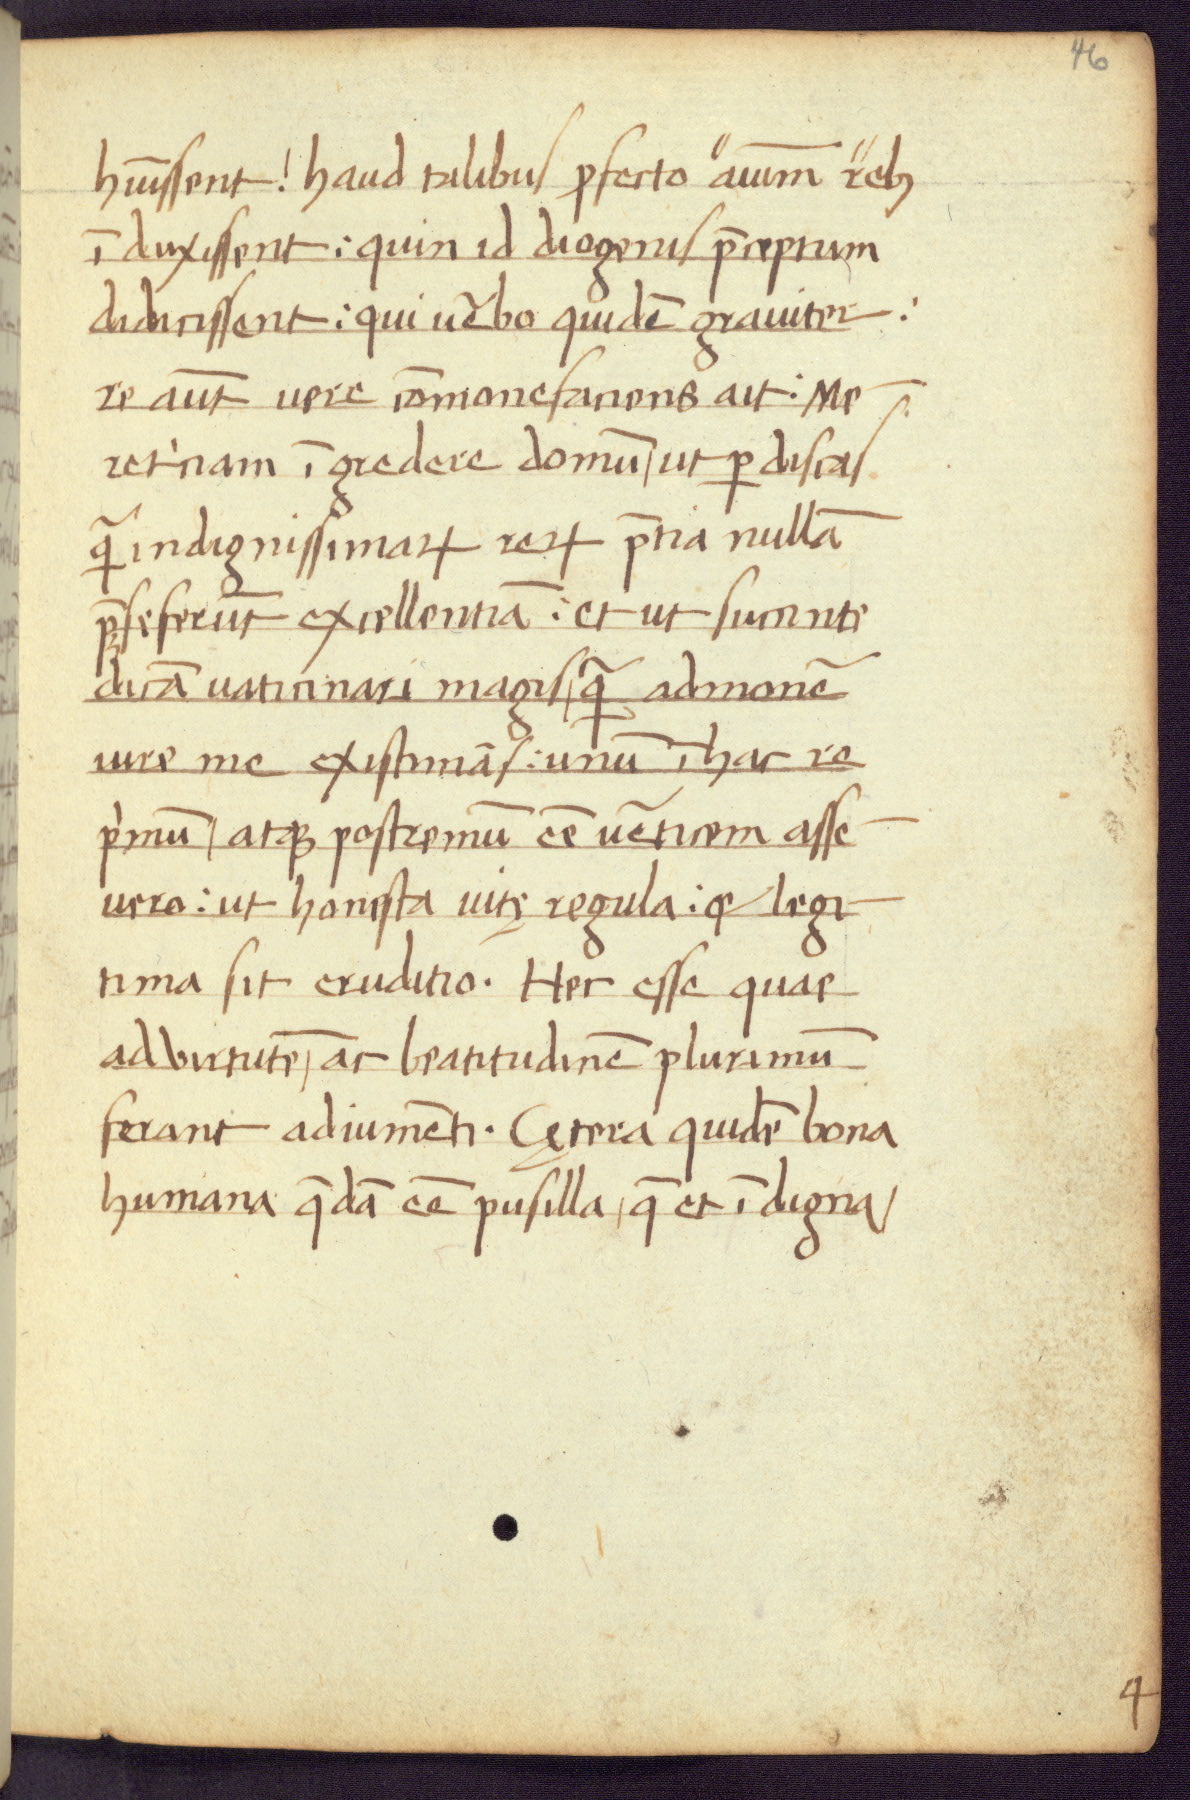 46
huı̅ssent! haud talibus ꝓfecto "auı̅m "rebꝫ
ı̅ duxissent: quin id diogenis p̅ceptum
didicissent: qui ue̅bo quide̅ grauiter:
re au̅t vere co̅monefaciens ait: Me-
retriciam ı̅gredere domu̅, ut ꝑdiscas
qua̅ indignissimaꝝ reꝝ p̅tia nulla̅
p̅seferu̅t excellentia̅: et ut sucinte
dica̅ uaticinari magis, qua̅ admone̅
iure me existima̅s: unu̅ ı̅ hac re
pͥmu̅, atqꝫ postremu̅ ee̅ ue̅ticem asse-
uero: ut honesta uitę regula: & legi-
tima sit eruditio. Hec esse quae
ad virtute̅, ac beatitudine̅ plurimu̅
ferant adiume̅ti. Cętera quide̅ bona
humana q̅da̅ ee̅ pusilla, q̅ et ı̅digna,
4